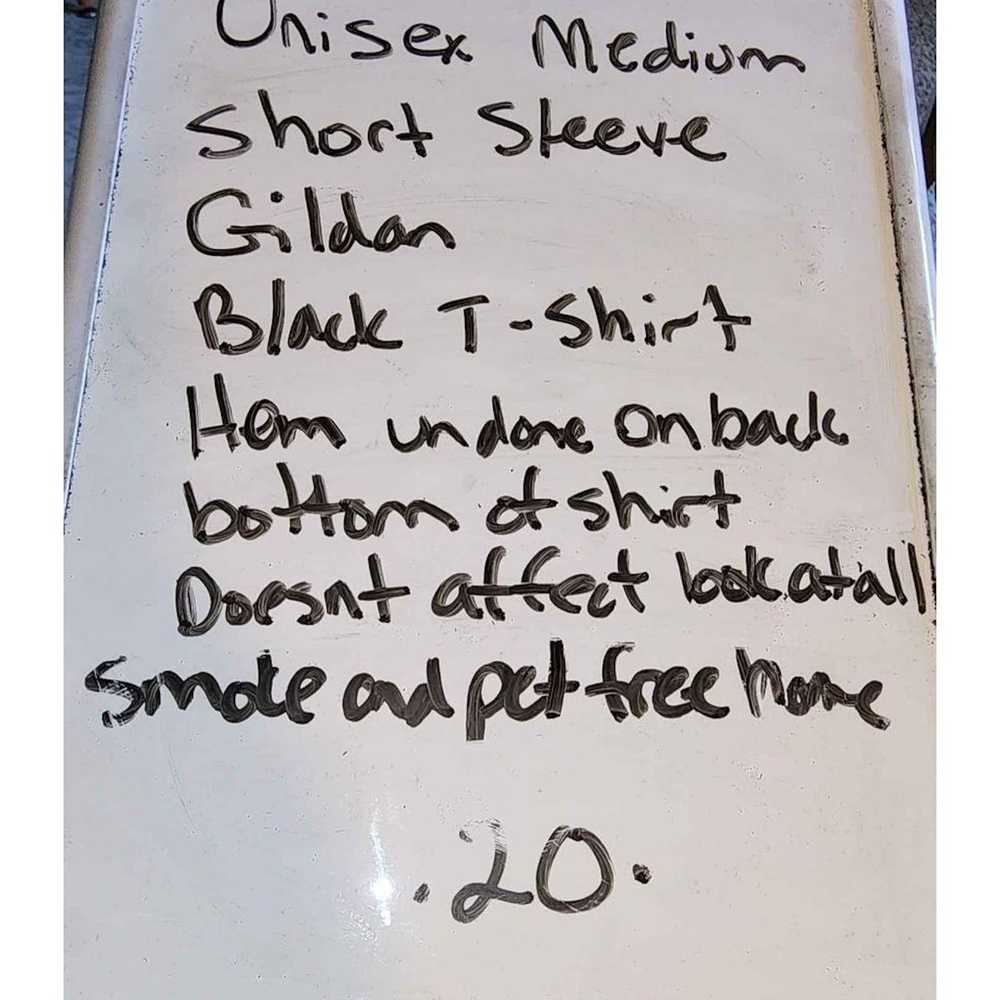 Unisex Medium
Short Sleeve
Gildan
Black T-Shirt
Hem undone on back
bottom of shirt
Doesnt affect look at all
Smoke and pet free home
.20.